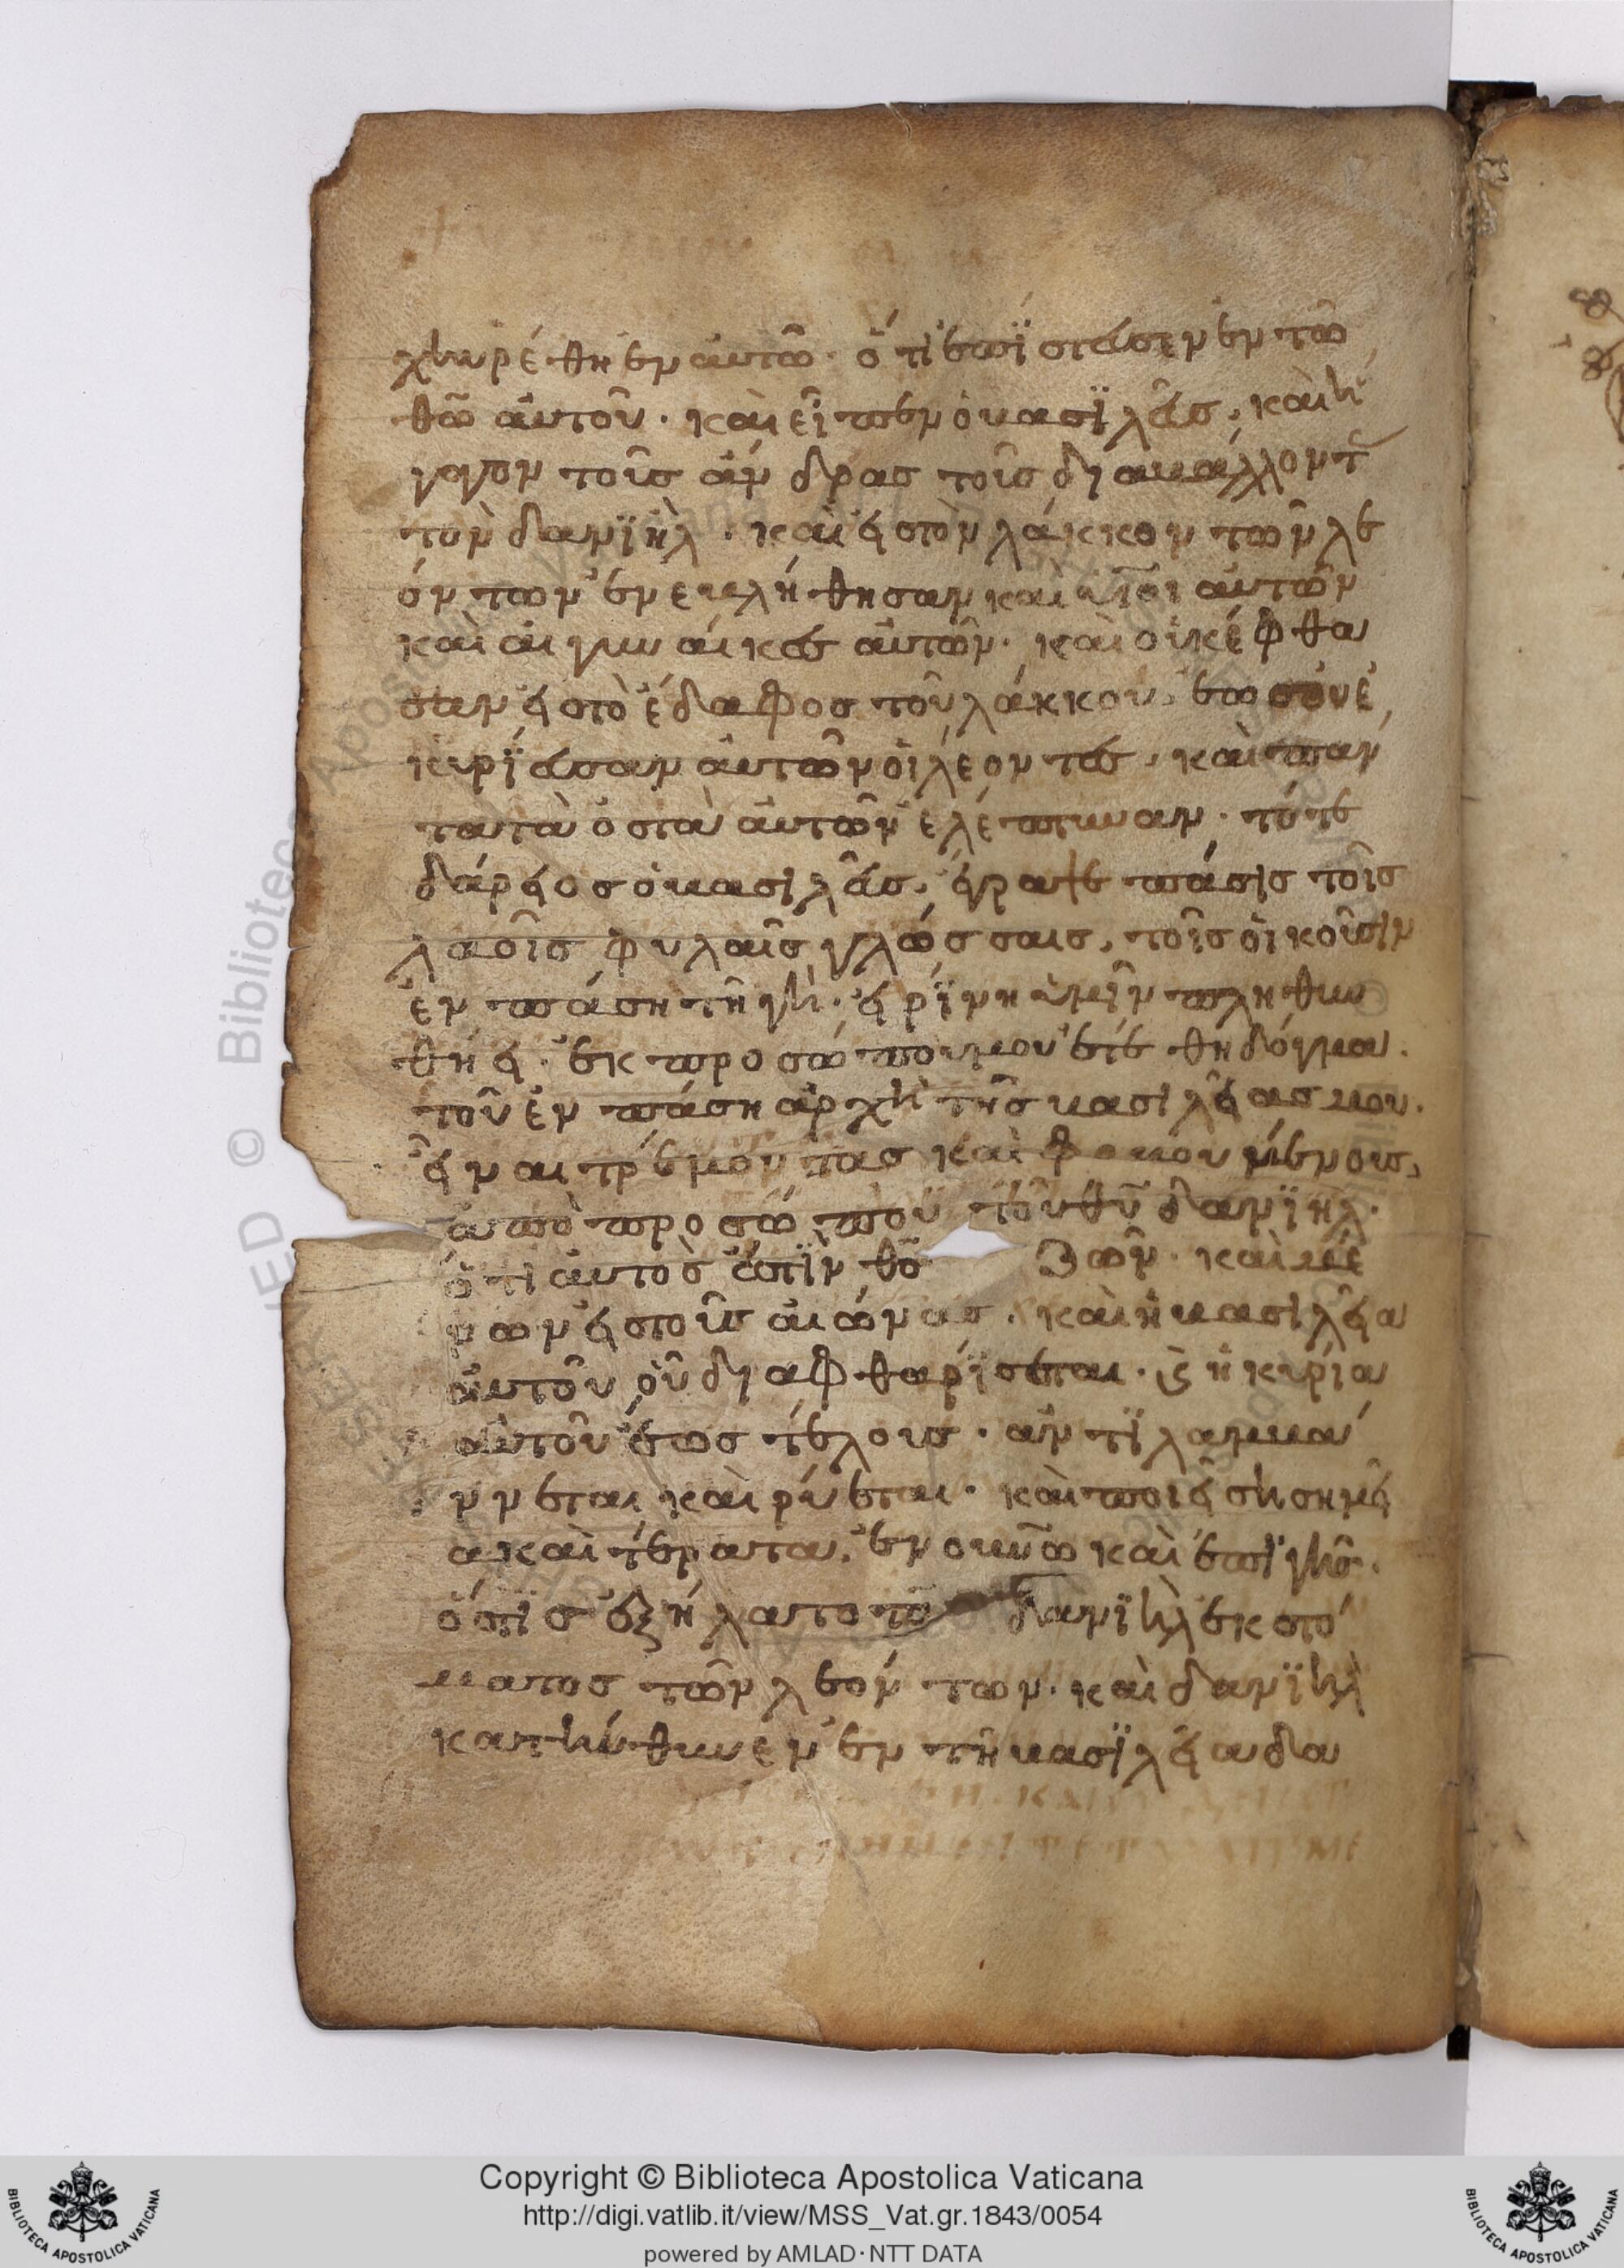 χηυρέθη ἐν αὐτῶ· ὅτι ἐπΐστευσεν ἐν τῶ
θῶ αὐτοῦ· καὶ εἶπεν ὁ βασϊλεὺσ, καὶ ἤ
γαγον τοὺσ ἄνδρασ τοὺσ διαβάλλοντ
τὸν δανϊὴλ· καὶ εἰσ τὸν λάκκον τῶν λε
όντων ἐνεβλήθησαν καὶ υἱοι αὐτῶν
καὶ αι γυναίκεσ αὐτῶν· καὶ οὐκ έφθα
σαν εἰσ τὸ ἔδαφοσ τοῦ λάκκου, ἕωσ οὗ ἐ
κυρϊευσαν αὐτῶν οἱ λέοντεσ, καὶ πάν
τα τὰ ὀστὰ αὐτῶν ἐλέπτυναν· τότε
δάρειοσ ὁ βασιλεὺσ, ἔγραψε πάσισ τοῖσ
λαοῖσ φυλαῖσ γλώσσαισ, τοῖσ οἰκοῦσιν
ἐν πάση τῆ γῆ· εἰρΐνη ὑμῖν πληθυν
θήει· ἐκ προσώπου μου ἐτέθη δόγμα·
τοῦ ἐν πάση ἀρχῆ τῆσ βασιλείασ μου·
εἶναι τρέμοντασ καὶ φοβουμένουσ,
ἀπὸ προσώπου τοῦ θῦ δανϊηλ·
ὅτι αὐτὸσ ἐστϊν θσ ζῶν· καὶ μέ
νων εἰσ τοὺσ αἰώνασ· καὶ ἡ βασιλεία
αὐτοῦ οὐ διαφθαρΐσεται· κ ἡ κυρία
αὐτοῦ ἕωσ τέλουσ· ἀντϊλαμβά
ννεται καὶ ρύεται· καὶ ποιεῖ σησημεῖ
α καὶ τέρατα, ἐν ουνῶ καὶ ἐπϊ γῆσ·
ὅστϊσ ἐξήλατο τὸ δανϊὴλ ἐκ στό
ματοσ τῶν λεόντων· καὶ δανϊὴλ
κατηύθυνεν ἐν τῆ βασϊλεία δα
Copyright © Biblioteca Apostolica Vaticana
http://digi.vatlib.it/view/MSS_Vat.gr.1843/0054
powered by AMLAD·NTT DATA
BIBLIOTECA APOSTOLICA VATICANA
BIBLIOTECA APOSTOLICA VATICANA